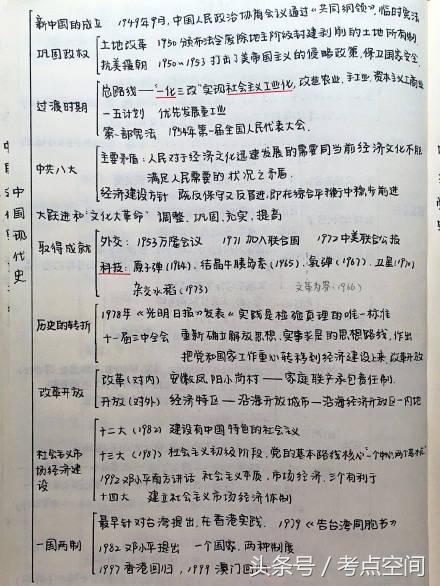 中国现代史
新中国的成立 1949年9月,中国人民政治协商会议通过《共同纲领》,临时宪法
巩固政权
土地改革 1950颁布法令废除地主阶级封建剥削的土地所有制
抗美援朝 1950~1953 打击了美帝国主义的侵略政策,保卫国家安全.
过渡时期
总路线——"一化三改"实现社会主义工业化,改造农业,手工业,资本主义工商业
一五计划 优先发展重工业
第一部宪法 1954年第一届全国人民代表大会.
中共八大
主要矛盾:人民对于经济文化迅速发展的需要同当前经济文化不能
满足人民需要的状况之矛盾.
经济建设方针 既反保守又反冒进,即在综合平衡中稳步前进
大跃进和"文化大革命" 调整、巩固、充实、提高
取得成就
外交:1953万隆会议 1971加入联合国 1972中美联合公报
科技:原子弹(1964).结晶牛胰岛素(1965).氢弹(1967).卫星(1970)
杂交水稻(1973) 文革为界(1966)
历史的转折
1978年《光明日报》发表《实践是检验真理的唯一标准
十一届三中全会 重新确立解放思想,实事求是的思想路线,作出
把党和国家工作重心转移到经济建设上来,改革开放
改革开放
改革(对内) 安徽凤阳小岗村——家庭联产承包责任制.
开放(对外) 经济特区—沿海开放城市—沿海经济开放区—内地
社会主义市场经济建设
十二大(1982) 建设有中国特色的社会主义
十三大(1987) 社会主义初级阶段,党的基本路线核心"一个中心,两个基本点"
1992邓小平南方讲话 社会主义本质,市场经济,三个有利于
十四大 建立社会主义市场经济体制
一国两制
最早针对台湾提出,在香港实践. 1979《告台湾同胞书》
1982邓小平提出 一个国家,两种制度
1997香港回归,1999澳门回
头条号 / 考点空间